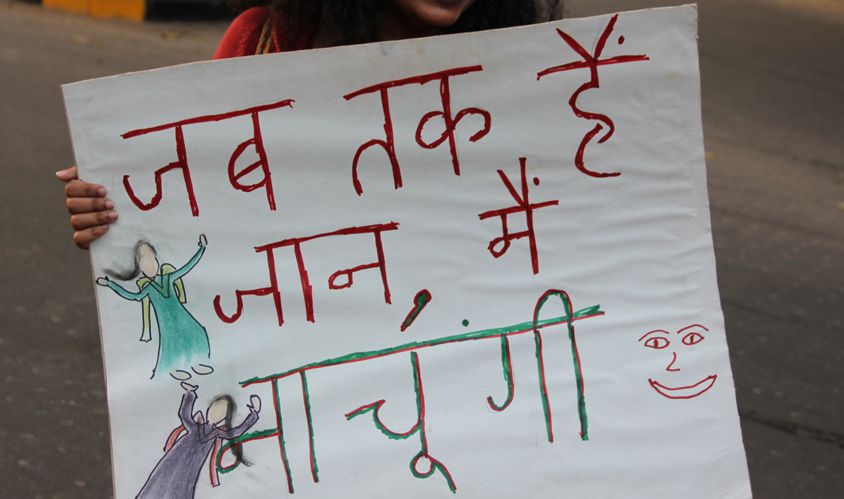 जब तक हैं
जान, मैं
नाचूंगी